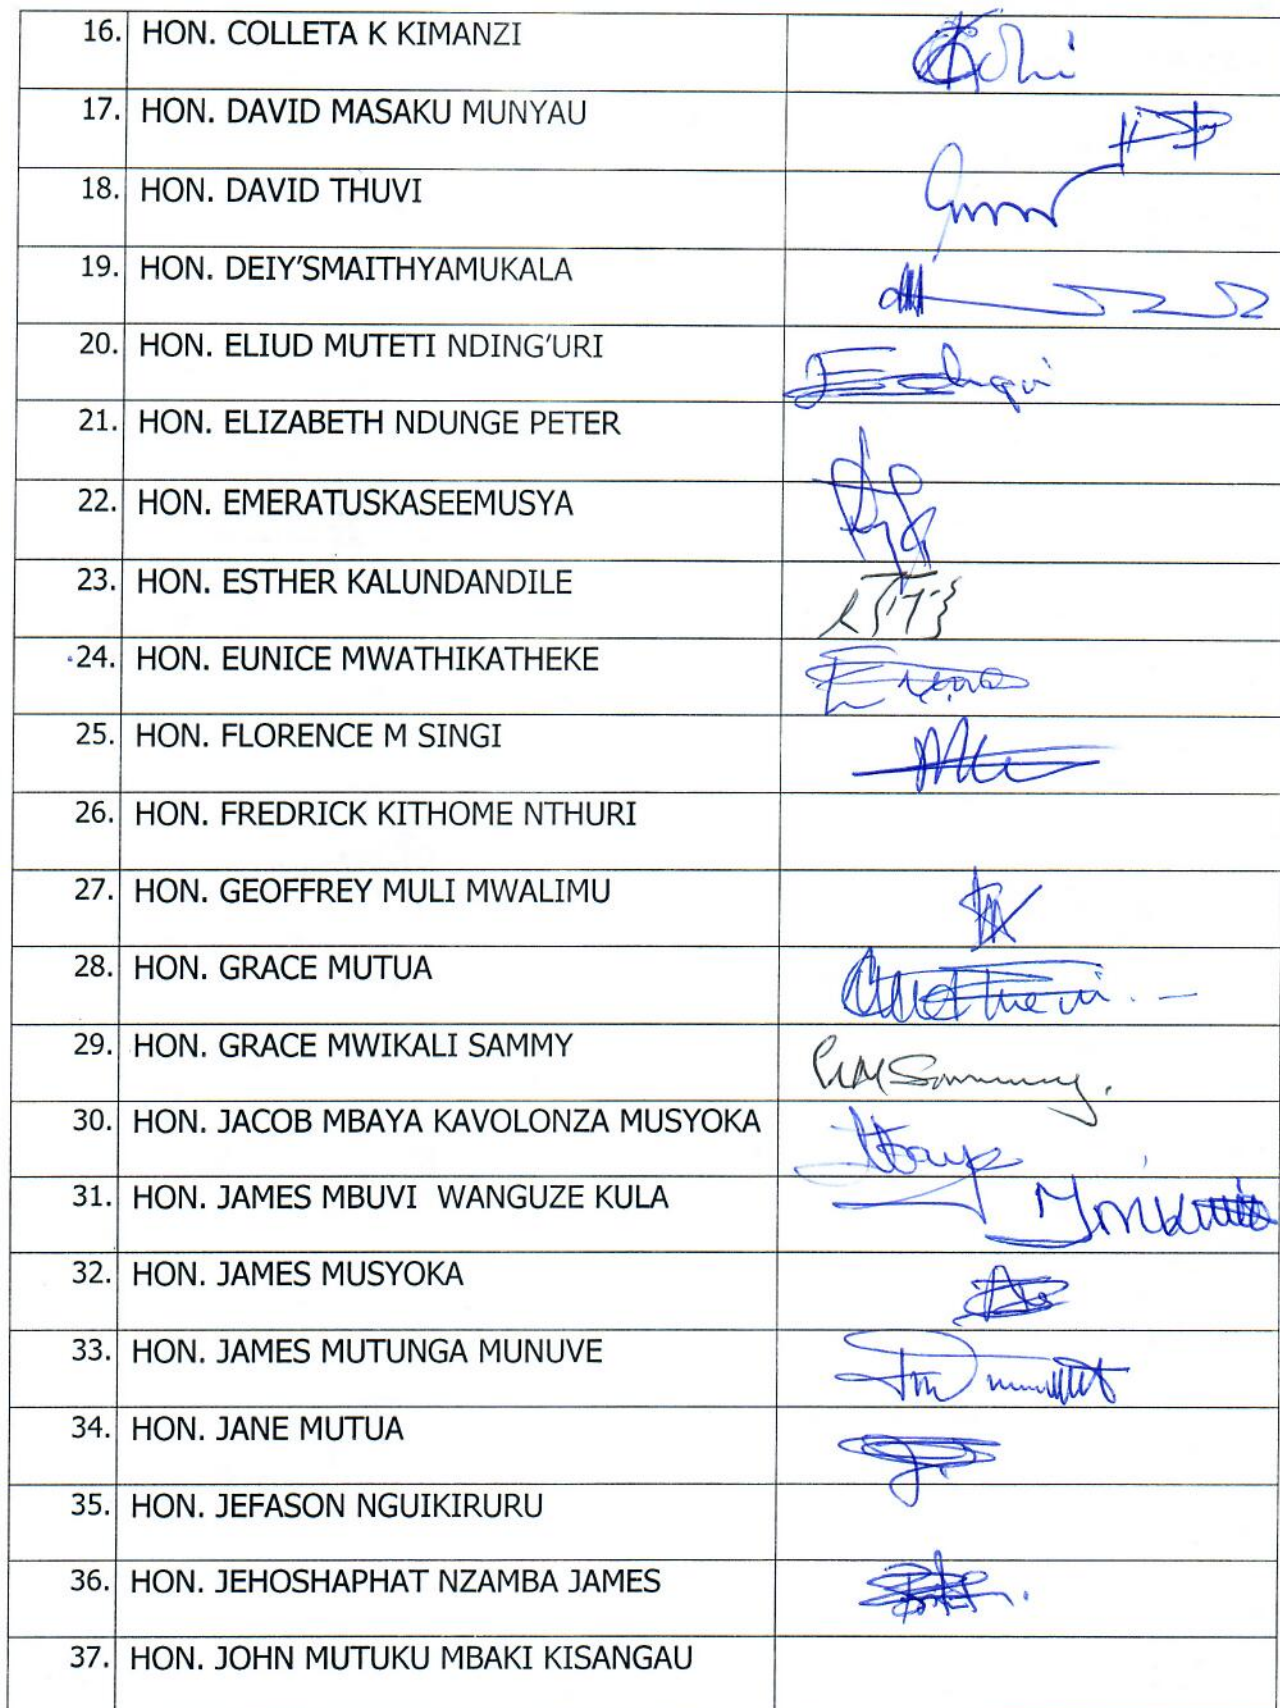 16. HON. COLLETA K KIMANZI
17. HON. DAVID MASAKU MUNYAU
18. HON. DAVID THUVI
19. HON. DEIY'SMAITHYAMUKALA
20. HON. ELIUD MUTETI NDING'URI
21. HON. ELIZABETH NDUNGE PETER
22. HON. EMERATUSKASEEMUSYA
23. HON. ESTHER KALUNDANDILE
24. HON. EUNICE MWATHIKATHEKE
25. HON. FLORENCE M SINGI
26. HON. FREDRICK KITHOME NTHURI
27. HON. GEOFFREY MULI MWALIMU
28. HON. GRACE MUTUA
29. HON. GRACE MWIKALI SAMMY
30. HON. JACOB MBAYA KAVOLONZA MUSYOKA
31. HON. JAMES MBUVI WANGUZE KULA
32. HON. JAMES MUSYOKA
33. HON. JAMES MUTUNGA MUNUVE
34. HON. JANE MUTUA
35. HON. JEFASON NGUIKIRURU
36. HON. JEHOSHAPHAT NZAMBA JAMES
37. HON. JOHN MUTUKU MBAKI KISANGAU